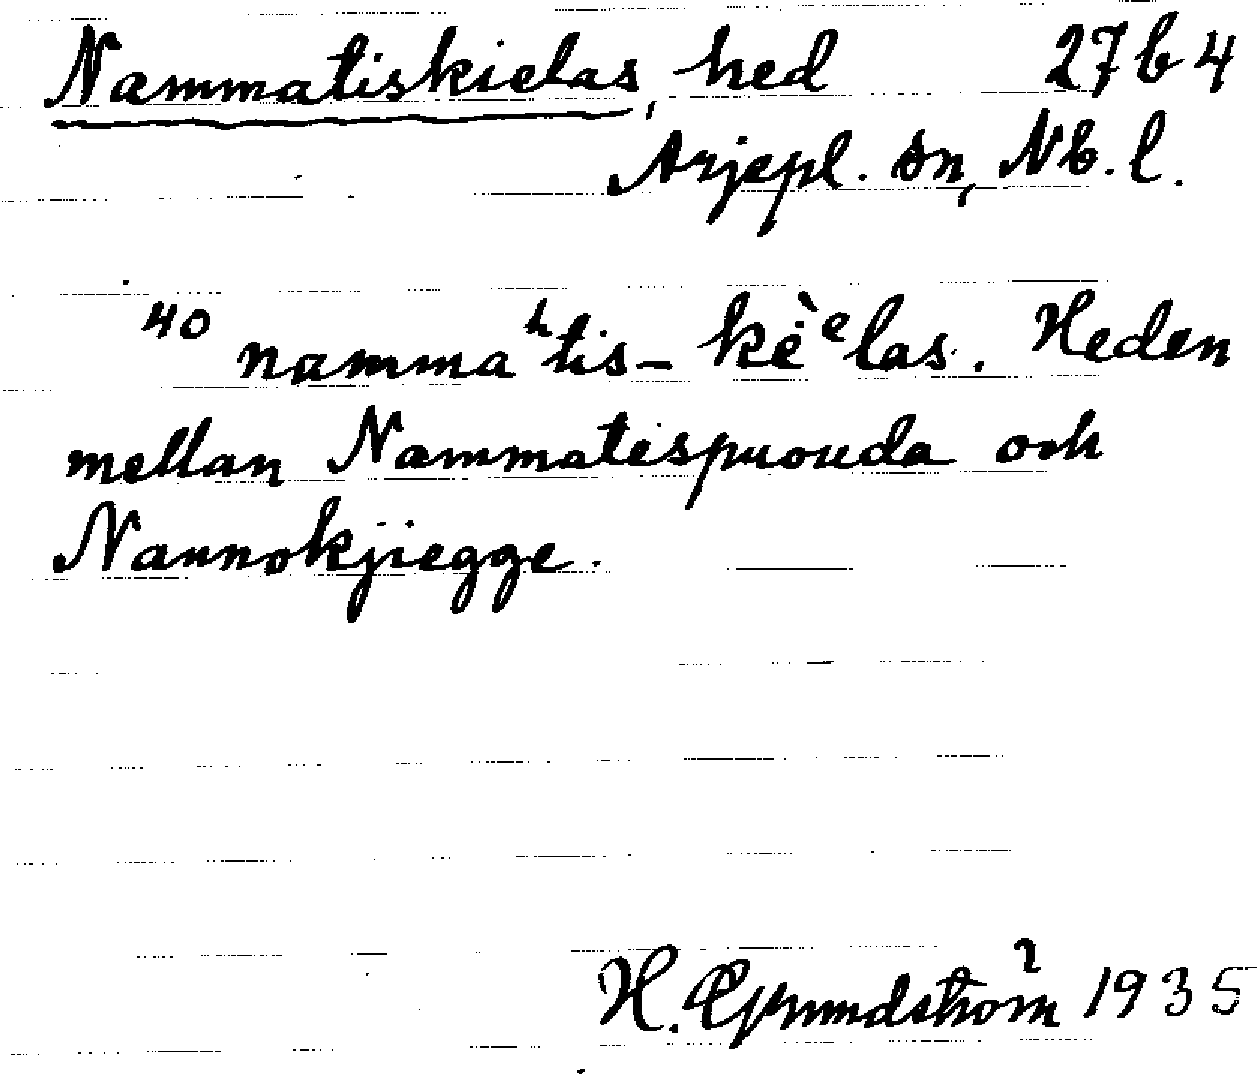 Nammatiskielas, hed 27b4
Arjepl. sn, Nb. l.
40 namma ʰtis- kè̇ ᵉlas. Heden
mellan Nammatispuouda och
Naunokjiegge.
H. Grundström 1935